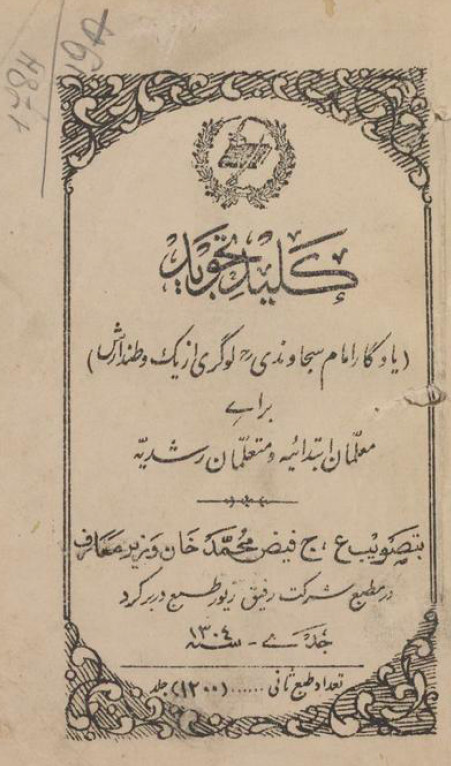 ۱۲۸۴
۱۹۸
کلیدِ تجوید
(یادگار امام سجاوندی رح لوگری از یک وطندارش)
براے
معلّمان ابتدائیه و متعلّمان رشدیّه
بتصویب ع ، ج فیض محمّد خان وزیر معارف
در مطبع شرکت رفیق زیور طبع دربر کرد
جدے - سنه ۱۳۰۴
تعداد طبع ثانی ...... (۱۲۰۰) جلد